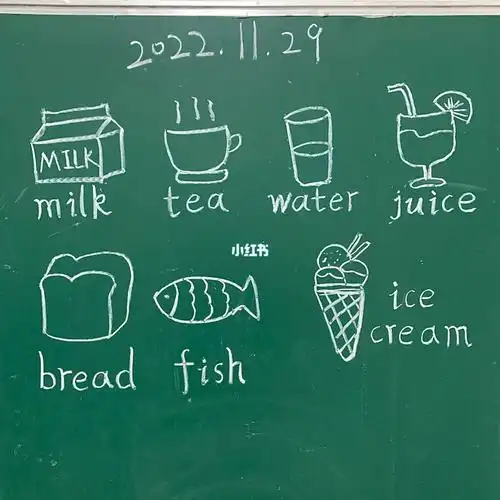 2022.11.29
MILK
milk tea water juice
小红书
bread fish
ice
cream